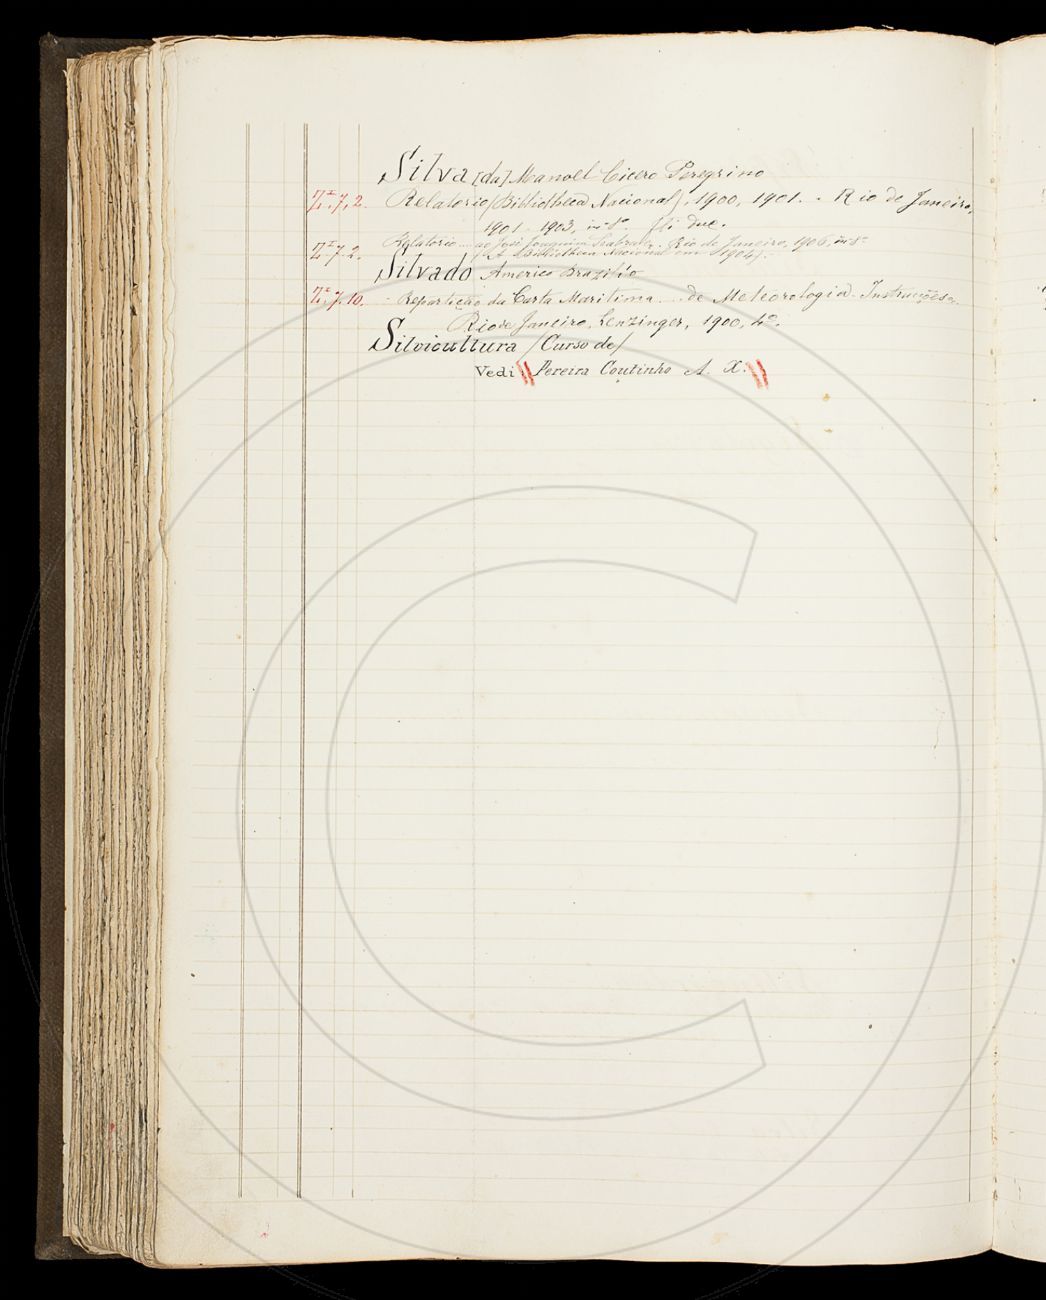 Silva [da] Manoel Cicero Peregrino
Z.I.7.2. Relatorio (Bibliotheca Nacional). 1900, 1901. - Rio de Janeiro,
1901 - 1903, in-8º. fti due.
Z.I.7.2. Relatorio ... ao José Joaquim Seabra ... Rio de Janeiro, 1906, in-8º
(A Bibliotheca Nacional em 1904).-
Silvado Americo Brazilio
Z.I.7.10. - Repartição da Carta Maritima ... de Meteorologia. Instrucções
Rio de Janeiro, Lenzinger, 1900, 4º.
Silvicultura (Curso de)
Vedi Pereira Coutinho A. X.